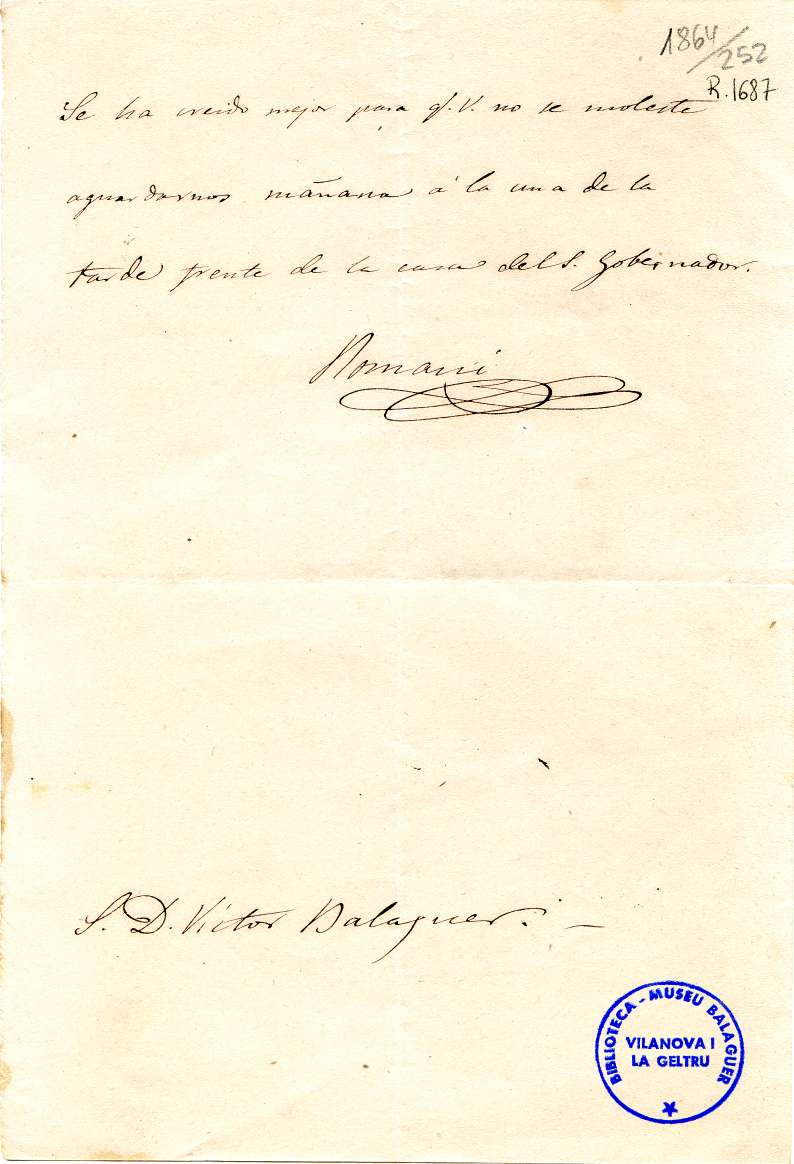 1864/252
R.1687
Se ha creido mejor para q.V. no se moleste
aguardarnos mañana á la una de la
tarde frente de la casa del S. Gobernador.
Romaní
S. D. Víctor Balaguer. –
BIBLIOTECA - MUSEU BALAGUER
VILANOVA I
LA GELTRU